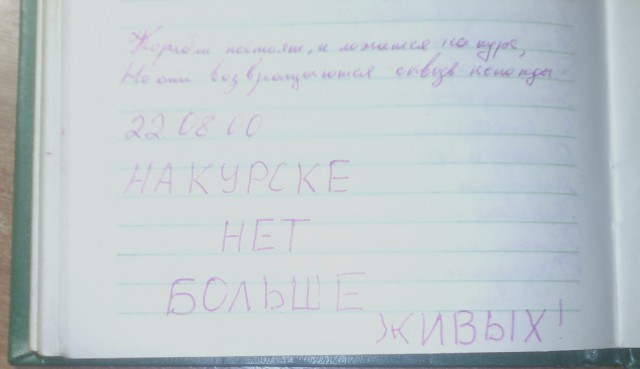 Корабли постоят, и ложатся на курс,
Но они возвращаются сквозь непогоды
22 08 00
НА КУРСКЕ
НЕТ
БОЛЬШЕ
ЖИВЫХ!